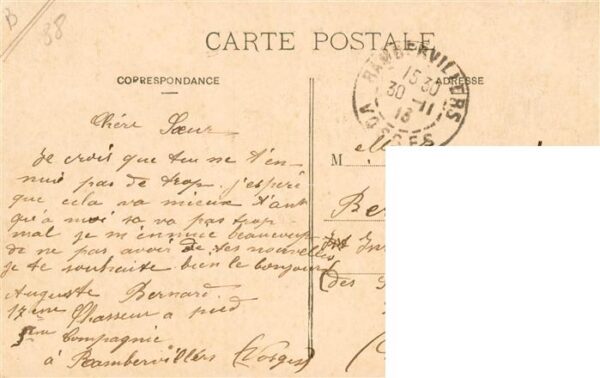 B
88
CARTE POSTALE
CORRESPONDANCE
ADRESSE
RAMBERVILLERS
15 30
30 - 11
18
VOSGES
Chére Sœur
Je crois que tu ne t'en-
nui pas de trop. j'esperé
que cela va mieux t'ant
qu'a moi sa va pas trop
mal je m'ennuie beaucoup
de ne pas avoir de tes nouvelles
je te souhaite bien le bonjour
Auguste Bernard.
17 ème Chasseur a pied
5eme Compagnie
á Rambervillérs (Vosges)
M elle
Be
(des